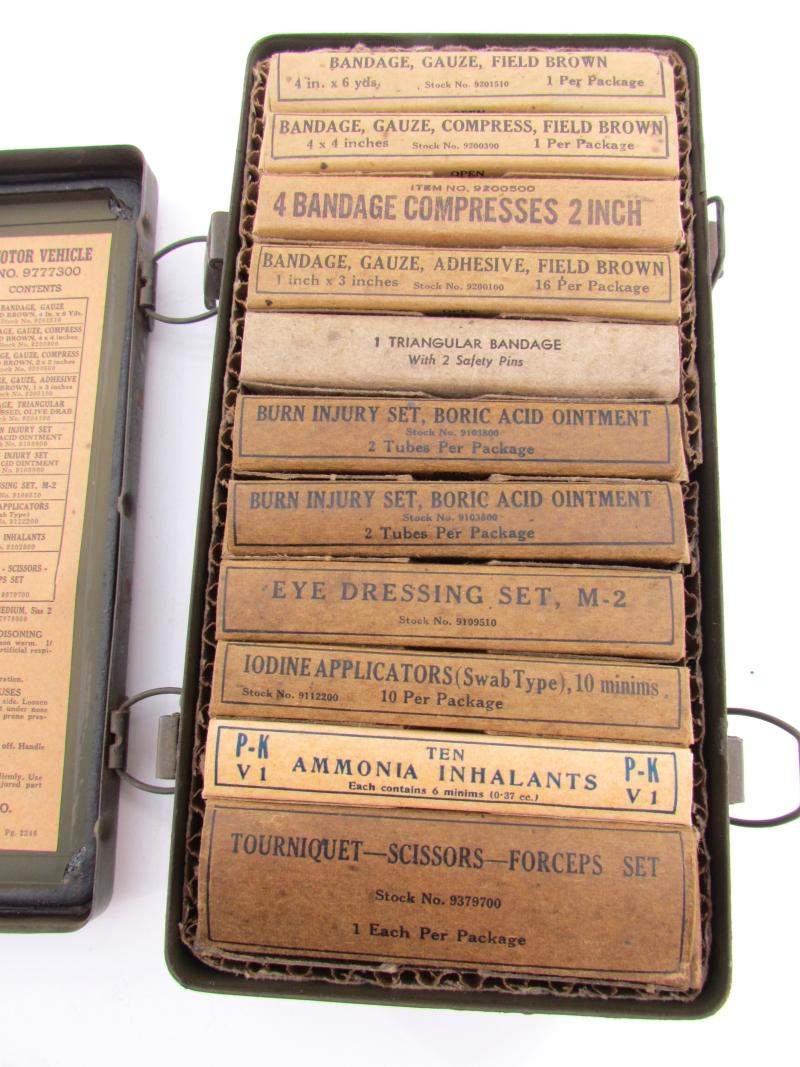 BANDAGE, GAUZE, FIELD BROWN
4 in. x 6 yds. Stock No. 9201510 1 Per Package
BANDAGE, GAUZE, COMPRESS, FIELD BROWN
4 x 4 inches Stock No. 9200300 1 Per Package
OPEN
ITEM NO. 9200500
4 BANDAGE COMPRESSES 2 INCH
BANDAGE, GAUZE, ADHESIVE, FIELD BROWN
1 inch x 3 inches Stock No. 9200100 16 Per Package
1 TRIANGULAR BANDAGE
With 2 Safety Pins
BURN INJURY SET, BORIC ACID OINTMENT
Stock No. 9103800
2 Tubes Per Package
BURN INJURY SET, BORIC ACID OINTMENT
Stock No. 9103800
2 Tubes Per Package
EYE DRESSING SET, M-2
Stock No. 9109510
IODINE APPLICATORS (Swab Type), 10 minims.
Stock No. 9112200 10 Per Package
P-K TEN P-K
V 1 AMMONIA INHALANTS V 1
Each contains 6 minims (0.37 cc.)
TOURNIQUET—SCISSORS—FORCEPS SET
Stock No. 9379700
1 Each Per Package
MOTOR VEHICLE
NO. 9777300
CONTENTS
BANDAGE, GAUZE
BROWN, 4 In. x 6 Yds.
GAUZE, COMPRESS
BROWN, 4 x 4 inches
GAUZE, COMPRESS
BROWN, 2 x 2 inches
GAUZE, ADHESIVE
BROWN, 1 x 3 inches
TRIANGULAR
OLIVE DRAB
INJURY SET
ACID OINTMENT
INJURY SET
ACID OINTMENT
SET, M-2
9109510
APPLICATORS
Type)
9112200
INHALANTS
- SCISSORS -
SET
9379700
MEDIUM, Size 2
warm. If
side. Loosen
under nose
off. Handle
Use
part
Pg. 2246